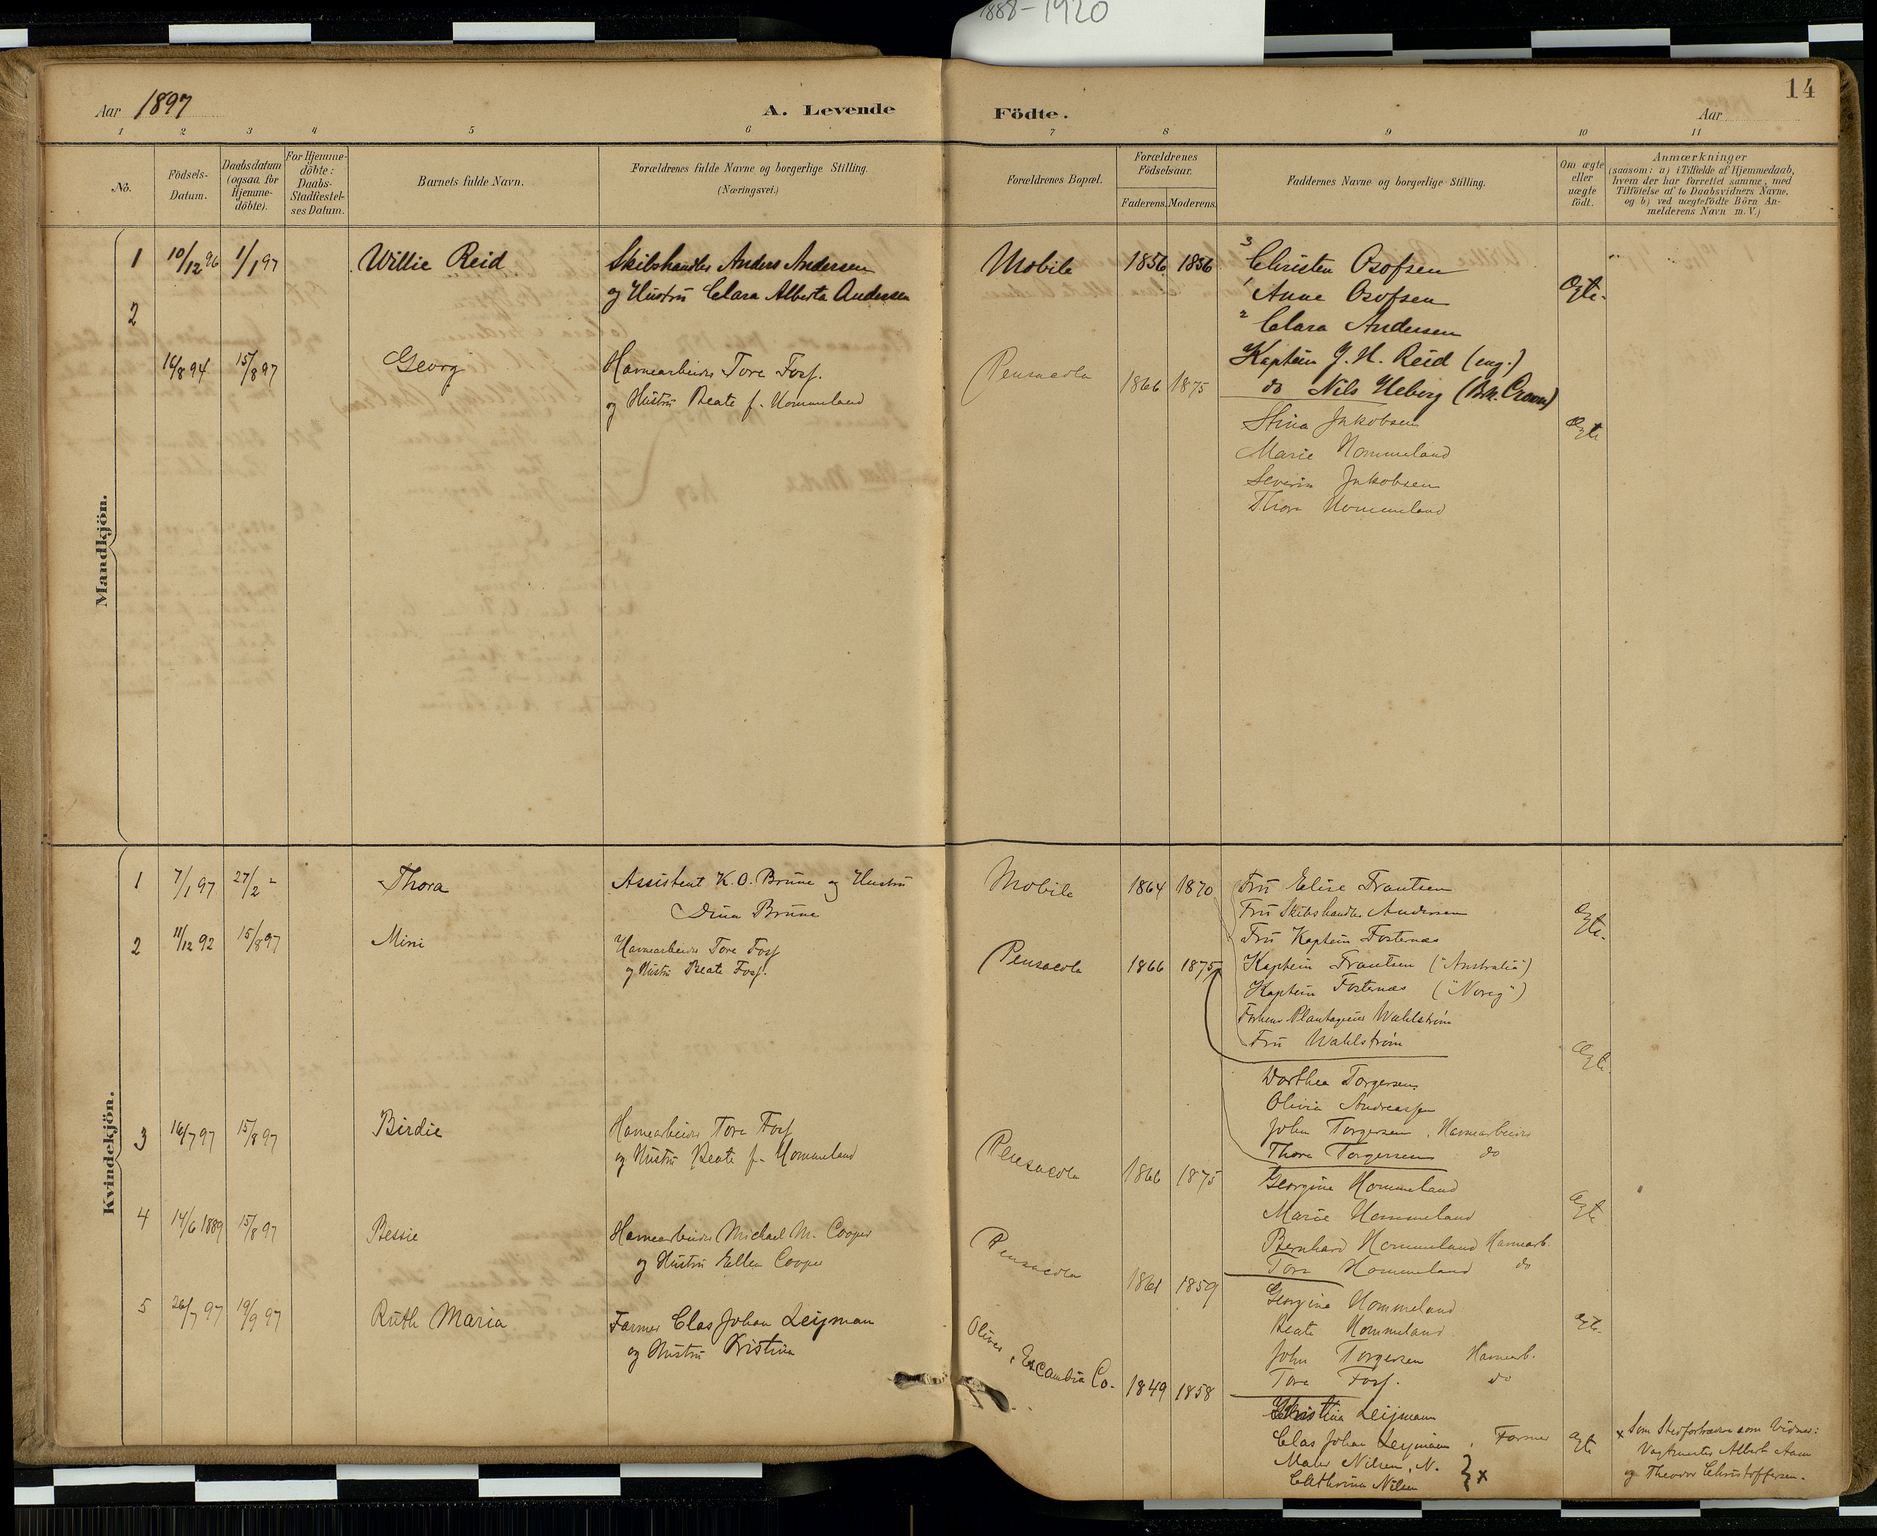 1888-1920
14
Aar 1897
A. Levende
Födte.
Aar
1 2 3 4 5 6 7 8 9 10 11
No.
Födsels-
Datum.
Daabsdatum
(ogsaa for
Hjemme-
döbte).
For Hjemme-
döbte:
Daabs-
Stadfæstel-
ses Datum.
Barnets fulde Navn.
Forældrenes fulde Navne og borgerlige Stilling.
(Næringsvei.)
Forældrenes Bopæl.
Forældrenes
Födselsaar.
Faderens. Moderens.
Faddernes Navne og borgerlige Stilling.
Om ægte
eller
uægte
födt.
Anmærkninger
(saasom: a) i Tilfælde af Hjemmedaab,
hvem der har forrettet samme, med
Tilföielse af to Daabsvidners Navne.
og b) ved uægtefödte Börn An-
melderens Navn m. V.)
Mandkjön.
1 10/12 96 1/1 97 Willie Reid Skibshandler Anders Andersen
og Hustru Clara Alberta Andersen
Mobile 1856 1856
3 Christen Osofsen
1 Anne Osofsen
2 Clara Andersen
Kaptein J. H. Reid (eng.)
do Nils Heborg
Ægte.
2 16/8 94 15/8 97 Georg Havnearbeider Tore Fosf.
og Hustru Beate f. Hommeland
Pensacola 1866 1875
Stina Jakobsen
Marie Hommeland
Severin Jakobsen
Thore Hommeland
Ægte
Kvindekjön.
1 7/1 97 27/2 " Thora Assistent K. O. Brune og Hustru
Dina Brune
Mobile 1864 1870
Fru Elise Frantsen
Fru Skibshandler Andersen
Fru Kaptein Fosternæs
Kaptein Frantsen ("Australia")
Kaptein Fosternæs ("Noreg")
Plantageeier Wahlström
Fru Wahlström
Ægte.
2 11/12 92 15/8 97 Mini Havnearbeider Tore Fosf
og Hustru Beate Fosf.
Pensacola 1866 1875
Dorthea Torgersen
Olivia Andreassen
John Torgersen, Havnearbeider
Thore Torgersen do
Ægte
3 16/7 97 15/8 97 Birdie Havnearbeider Tore Fosf
og Hustru Beate f. Hommeland
Pensacola 1866 1875
Georgine Hommeland
Marie Hommeland
Bernhard Hommeland Havnearb.
Tore Hommeland do
Ægte
4 14/6 1889 15/8 97 Bessie Havnearbeider Michael M. Cooper
og Hustru Ellen Cooper
Pensacola 1861 1859
Georgine Hommeland
Beate Hommeland
John Torgersen Havnearb.
Tore Fosf. do
Ægte.
5 26/7 97 19/9 97 Ruth Maria Farmer Clas Johan Leijman
og Hustru Kristina
Olives, Escambia Co. 1849 1858
Christina Leijmann
Clas Johan Leijmann, Farmer
Nilsen, N.
Cathrina Nilsen } x
Ægte
x Som Stedfortrædere som Vidner:
Albert Aam
og Theodor Christoffersen.